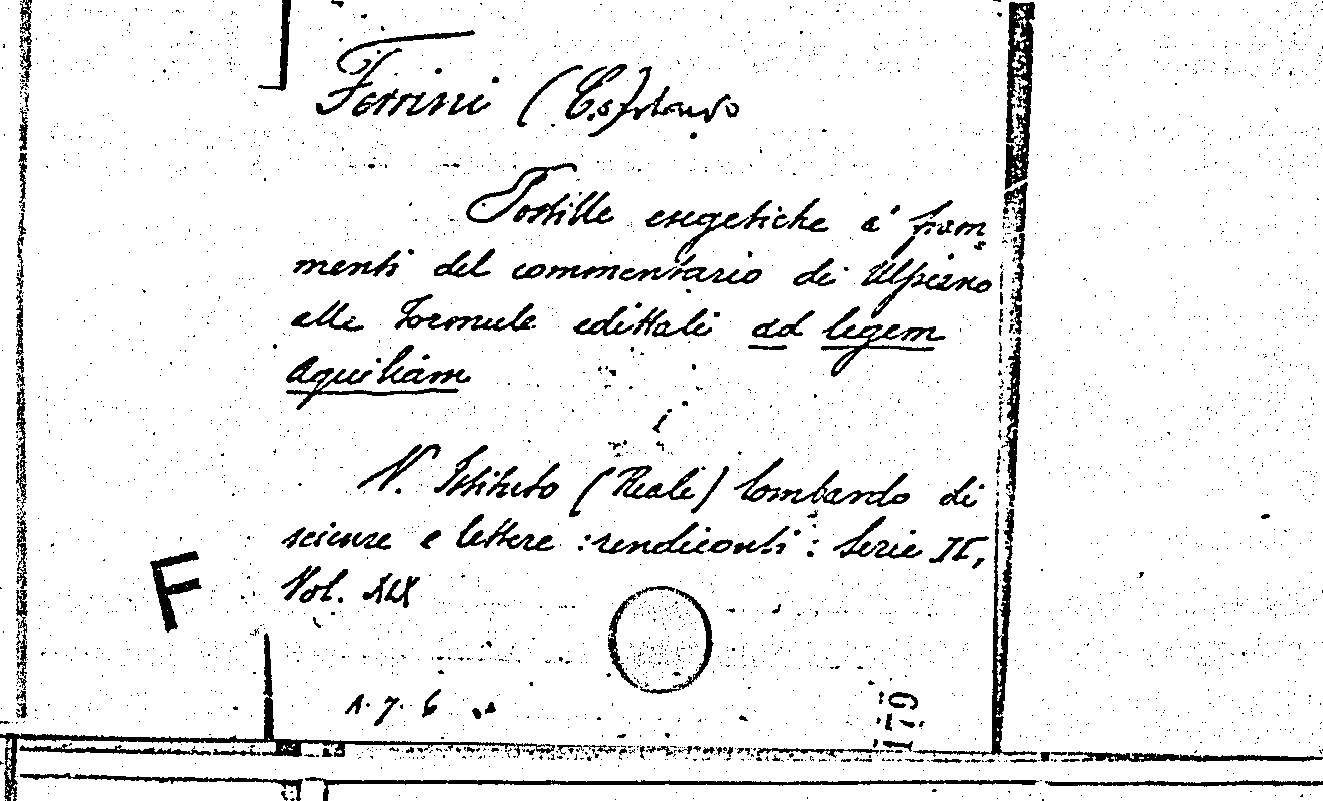 Ferrini (C.s) Contardo
Postille esegetiche a' fram-
menti del commentario di Ulpiano
alle formule edittali ad legem
Aquiliam
V. Istituto (Reale) lombardo di
scienze e lettere : rendiconti : Serie II,
Vol. XIX
F
A. 7. 6
179